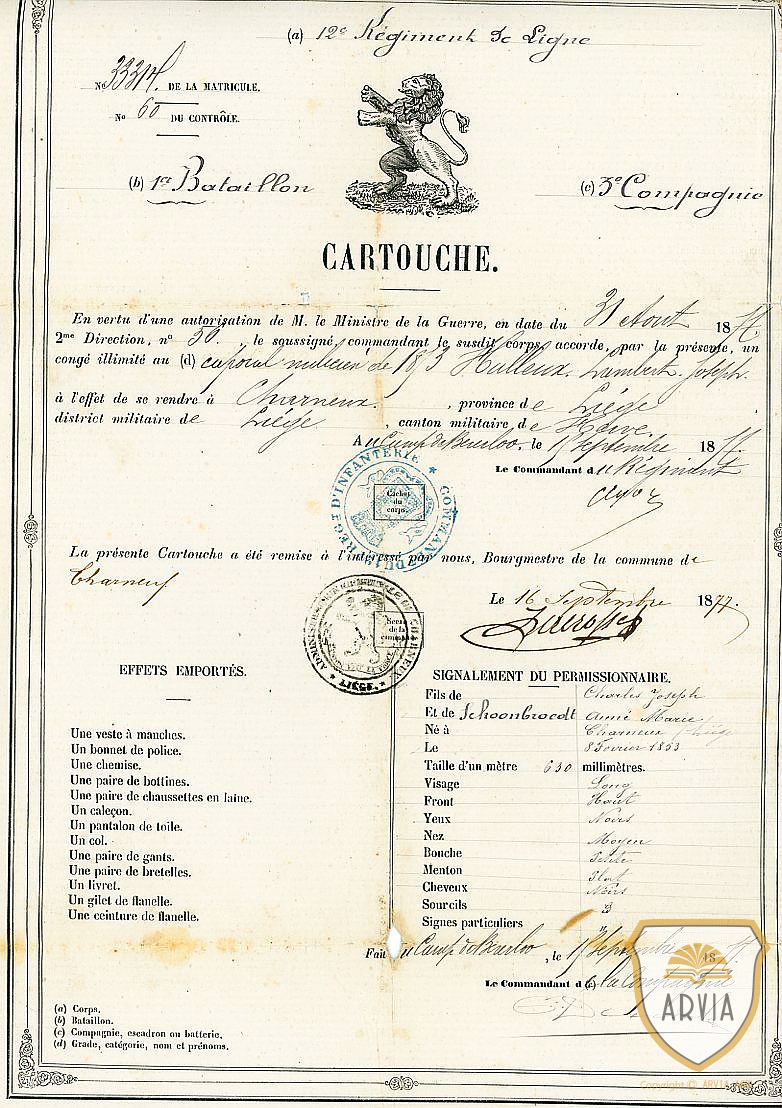 (a) 12e Régiment de Ligne
No DE LA MATRICULE.
No 60 DU CONTRÔLE.
(b) 1er Bataillon
(c) 3e Compagnie
CARTOUCHE.
En vertu d'une autorisation de M. le Ministre de la Guerre, en date du 31 Aout 1877
2me Direction, no 50. le soussigné, commandant le susdit corps, accorde, par la présente, un
congé illimité au (d) caporal milicien de 1873 Halleux, Lambert, Joseph.
à l'effet de se rendre à Charneux. , province de Liége
district militaire de Liége , canton militaire de Herve
Au Camp de Beverloo, le 15 Septembre 1877.
Le Commandant du Régiment
Cachet du corps.
REGt D'INFANTERIE * COMMANDt DU 12e
La présente Cartouche a été remise à l'intéressé par nous, Bourgmestre de la commune de
Charneux
Le 16 Septembre 1877.
Sceau de la commune
ADMINISTRATION COMMUNALE DE CHARNEUX * LIEGE *
EFFETS EMPORTÉS.
Une veste à manches.
Un bonnet de police.
Une chemise.
Une paire de bottines.
Une paire de chaussettes en laine.
Un caleçon.
Un pantalon de toile.
Un col.
Une paire de gants.
Une paire de bretelles.
Un livret.
Un gilet de flanelle.
Une ceinture de flanelle.
SIGNALEMENT DU PERMISSIONNAIRE.
Fils de Charles Joseph
Et de Schoonbroodt Anne Marie
Né à Charneux (Liége
Le 8 Fevrier 1853
Taille d'un mètre 630 millimètres.
Visage Long
Front Haut
Yeux Noirs
Nez Moyen
Bouche Petite
Menton Plat
Cheveux Noirs
Sourcils id
Signes particuliers "
Fait au Camp de Beverloo, le 15 Septembre 1877.
Le Commandant d (c) la Compagnie
(a) Corps.
(b) Bataillon.
(c) Compagnie, escadron ou batterie.
(d) Grade, catégorie, nom et prénoms.
ARVIA
Copyright © ARVIA